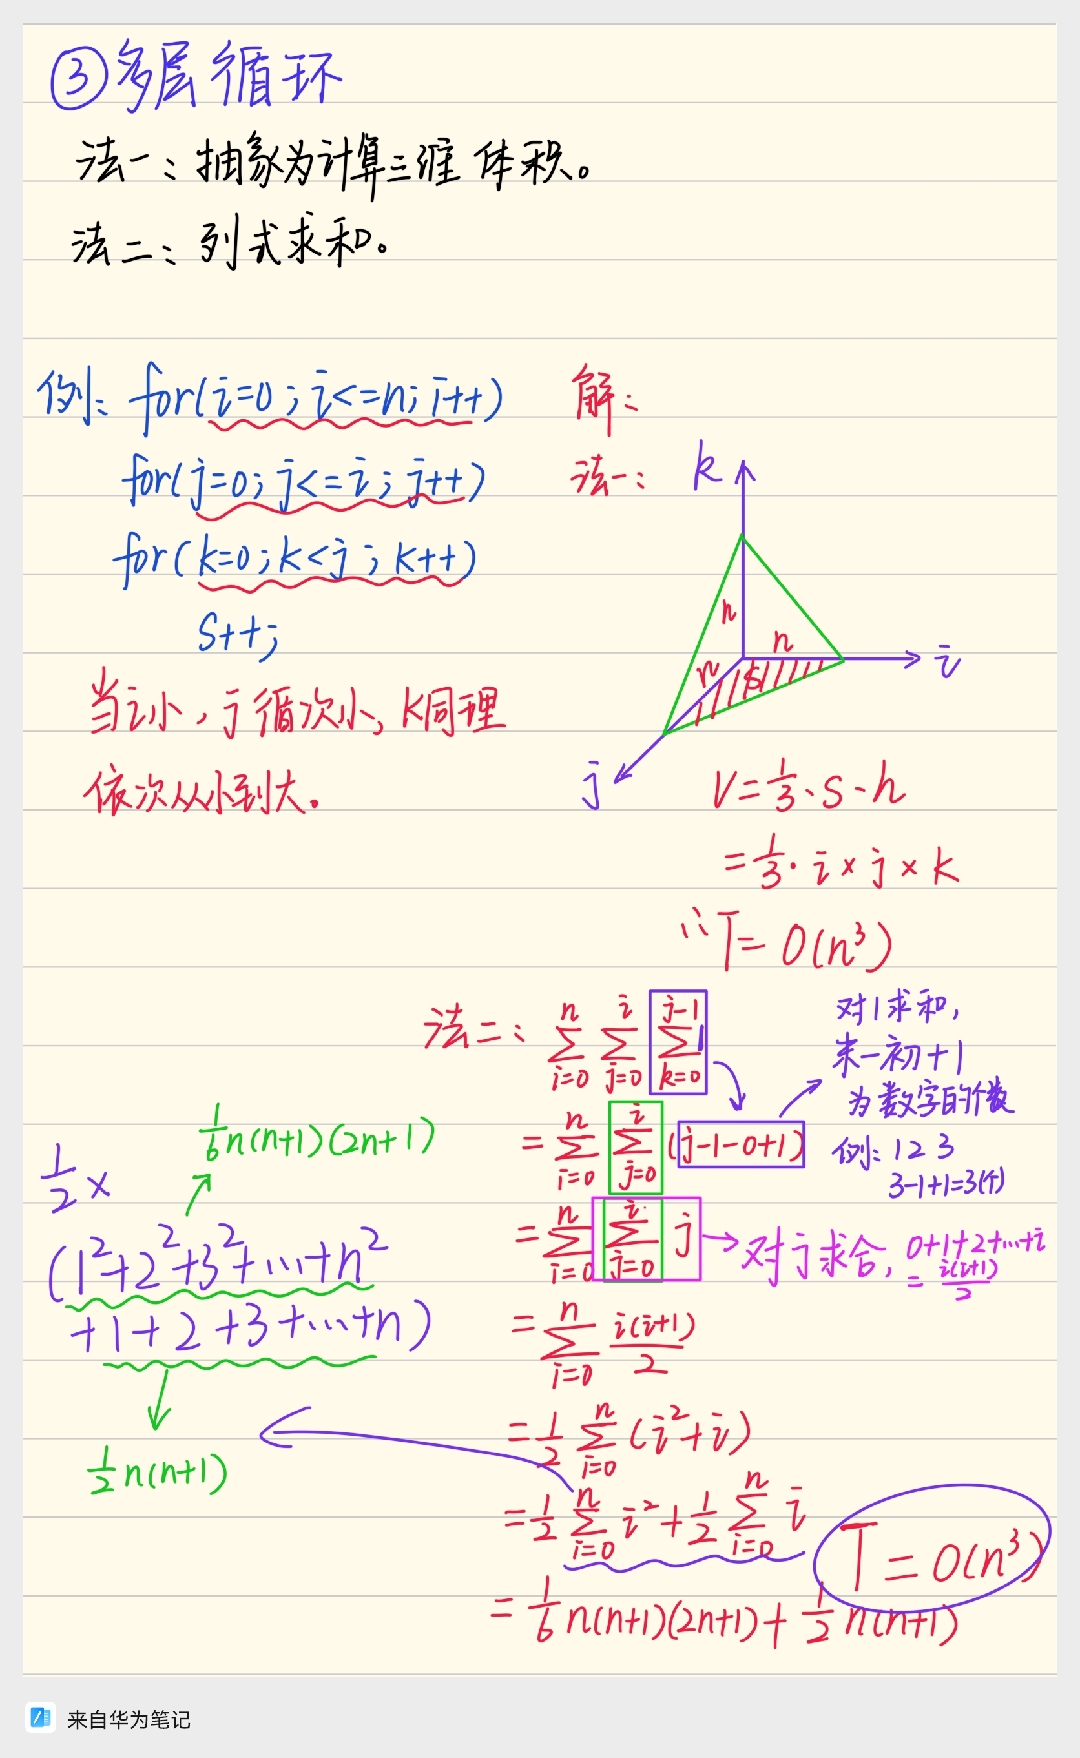 ③多层循环
法一：抽象为计算三维体积。
法二：列式求和。
例：for(i=0;i<=n;i++)
for(j=0;j<=i;j++)
for(k=0;k<j;k++)
S++;
当i小，j循次小，k同理
依次从小到大。
解：
法一：
k
n
n
n
S
i
j
V=1/3·S·h
=1/3·i×j×k
∵T=O(n³)
法二：∑_{i=0}^{n} ∑_{j=0}^{i} ∑_{k=0}^{j-1} 1
对1求和，
末-初+1
为数字的个数
例：1 2 3
3-1+1=3(个)
=∑_{i=0}^{n} ∑_{j=0}^{i} (j-1-0+1)
=∑_{i=0}^{n} ∑_{j=0}^{i} j
对j求合，0+1+2+…+i
=i(i+1)/2
=∑_{i=0}^{n} i(i+1)/2
=1/2 ∑_{i=0}^{n} (i²+i)
=1/2 ∑_{i=0}^{n} i²+1/2 ∑_{i=0}^{n} i
=1/6 n(n+1)(2n+1)+1/2 n(n+1)
T=O(n³)
1/6 n(n+1)(2n+1)
1/2×
(1²+2²+3²+…+n²
+1+2+3+…+n)
1/2 n(n+1)
来自华为笔记